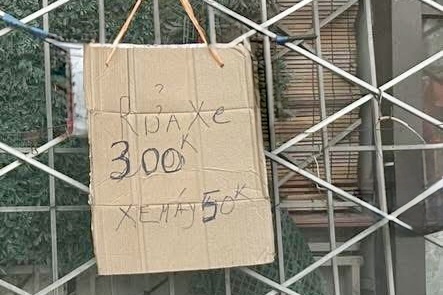 RỬA Xe
300K
XE MÁY 50K